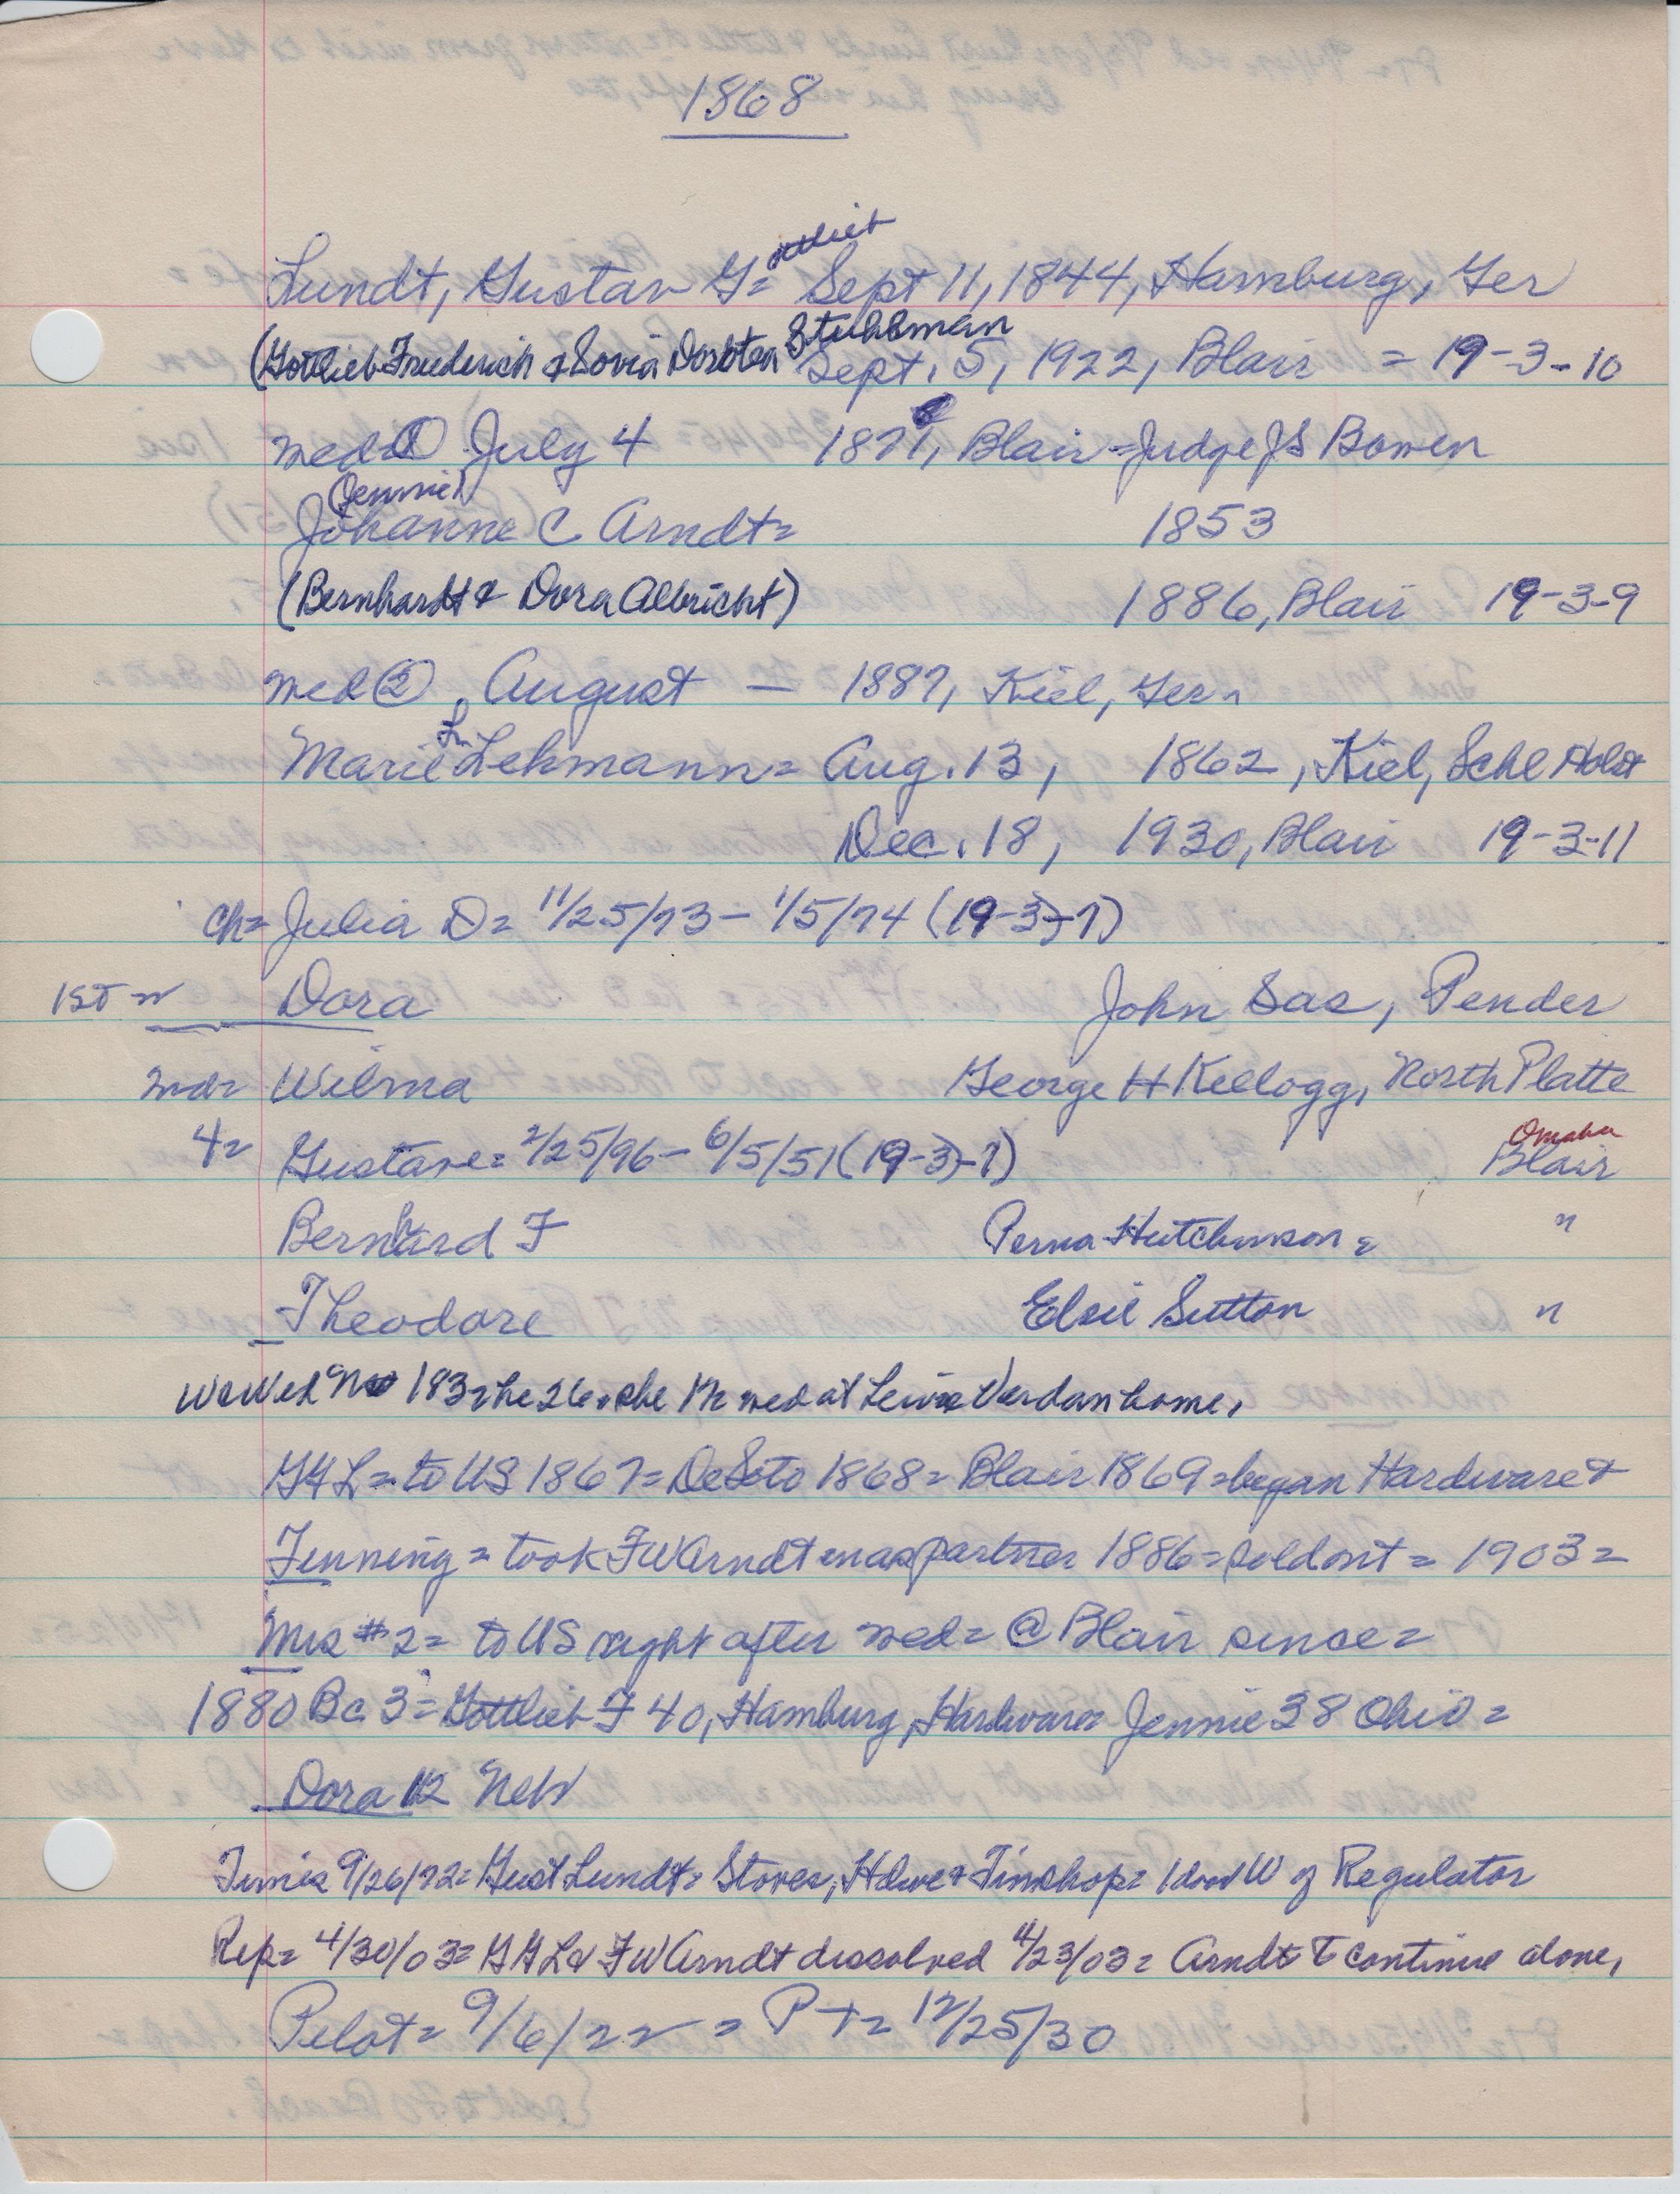 1868
ottlieb
Lundt, Gustav G= Sept 11, 1844, Hamburg, Ger
(Gottlieb Friederich & Sovia Dorotea Stuhlman
Sept. 5, 1922, Blair = 19-3-10
wed ① July 4 1871, Blair = Judge JS Bowen
(Jennie)
Johanne C Arndt= 1853
(Bernhardt & Dora Albricht) 1886, Blair 19-3-9
wed ② August — 1887, Kiel, Ger
Marie Lehmann= Aug. 13, 1862, Kiel, Schl Holst
Dec. 18, 1930, Blair 19-3-11
ch= Julia D= 11/25/73 - 1/5/74 (19-3)-7)
1st = Dora John Sas, Pender
md= Wilma George H Kellogg, North Platte
Omaha
4= Gustave= 2/25/96 - 6/5/51 (19-3)-7) Blair
Bernhard F Perna Hutchinson = "
Theodore Elsie Sutton "
WCWed 183= he 26, she 18 wed at Lewis Verdan home,
GGL= to US 1867= DeSoto 1868= Blair 1869= began Hardware &
Tinning = took FW Arndt in as partner 1886= sold out = 1903=
Mrs #2= to US right after wed= @ Blair since=
1880 Bc 3= Gottlieb F 40, Hamburg, Hardware= Jennie 38 Ohio=
Dora 12 Neb
Times 9/26/72= Gust Lundt= Stoves, Hdwe & Tinshop= 1 door W of Regulator
Rep= 4/30/03= GGL & FW Arndt dissolved 4/23/03= Arndt to continue alone,
Pilot= 9/6/22 = PT= 12/25/30